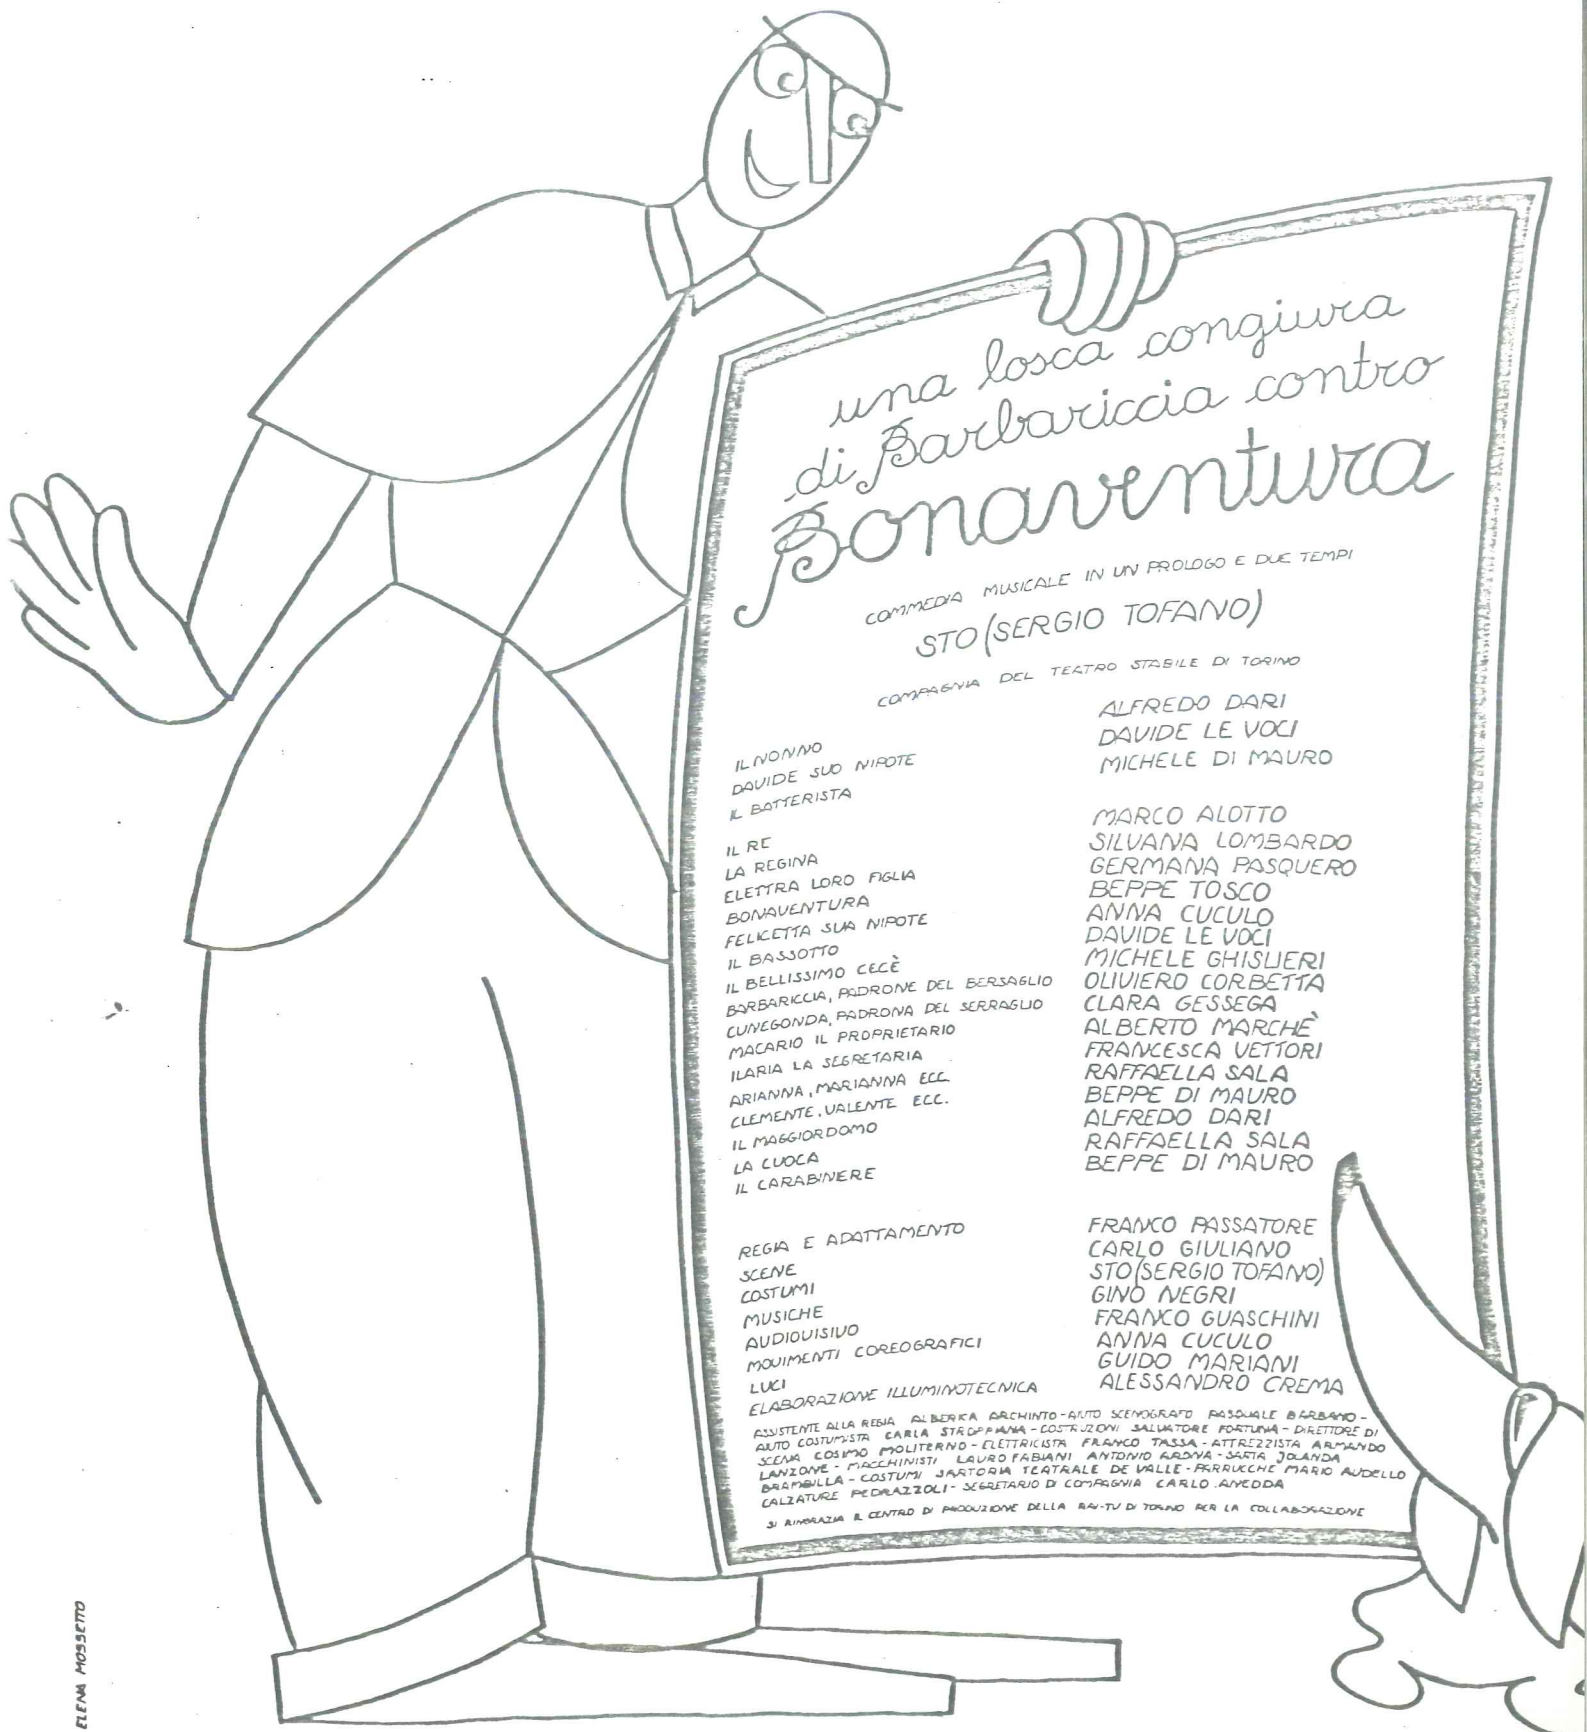 una losca congiura
di Barbariccia contro
Bonaventura
COMMEDIA MUSICALE IN UN PROLOGO E DUE TEMPI
STO (SERGIO TOFANO)
COMPAGNIA DEL TEATRO STABILE DI TORINO
IL NONNO ALFREDO DARI
DAVIDE SUO NIPOTE DAVIDE LE VOCI
IL BATTERISTA MICHELE DI MAURO
IL RE MARCO ALOTTO
LA REGINA SILVANA LOMBARDO
ELETTRA LORO FIGLIA GERMANA PASQUERO
BONAVENTURA BEPPE TOSCO
FELICETTA SUA NIPOTE ANNA CUCULO
IL BASSOTTO DAVIDE LE VOCI
IL BELLISSIMO CECÈ MICHELE GHISLIERI
BARBARICCIA, PADRONE DEL BERSAGLIO OLIVIERO CORBETTA
CUNEGONDA, PADRONA DEL SERRAGLIO CLARA GESSEGA
MACARIO IL PROPRIETARIO ALBERTO MARCHÈ
ILARIA LA SEGRETARIA FRANCESCA VETTORI
ARIANNA, MARIANNA ECC. RAFFAELLA SALA
CLEMENTE, VALENTE ECC. BEPPE DI MAURO
IL MAGGIORDOMO ALFREDO DARI
LA CUOCA RAFFAELLA SALA
IL CARABINERE BEPPE DI MAURO
REGIA E ADATTAMENTO FRANCO PASSATORE
SCENE CARLO GIULIANO
COSTUMI STO (SERGIO TOFANO)
MUSICHE GINO NEGRI
AUDIOVISIVO FRANCO GUASCHINI
MOVIMENTI COREOGRAFICI ANNA CUCULO
LUCI GUIDO MARIANI
ELABORAZIONE ILLUMINOTECNICA ALESSANDRO CREMA
ASSISTENTE ALLA REGIA ALBERICA ARCHINTO - AIUTO SCENOGRAFO PASQUALE BARBANO -
AIUTO COSTUMISTA CARLA STROPPIANA - COSTRUZIONI SALVATORE FORTUNA - DIRETTORE DI
SCENA COSIMO MOLITERNO - ELETTRICISTA FRANCO TASSA - ATTREZZISTA ARMANDO
LANZONE - MACCHINISTI LAURO FABIANI ANTONIO ARDNA - SARTA JOLANDA
BRAMBILLA - COSTUMI SARTORIA TEATRALE DE VALLE - PARRUCCHE MARIO AUDELLO
CALZATURE PEDRAZZOLI - SEGRETARIO DI COMPAGNIA CARLO ANEDDA
SI RINGRAZIA IL CENTRO DI PRODUZIONE DELLA RAI-TV DI TORINO PER LA COLLABORAZIONE
ELENA MOSSETTO